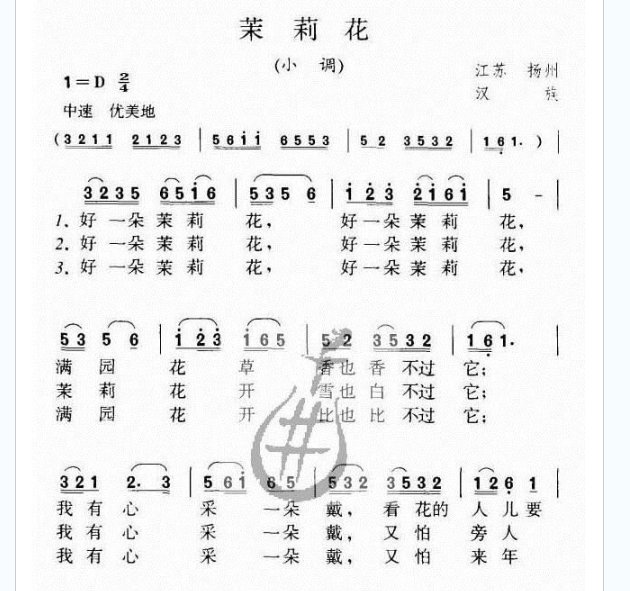 茉 莉 花
(小 调)
江苏 扬州
1=D 2/4
汉 族
中速 优美地
(3 2 1 1 2 1 2 3 | 5 6 i i 6 5 5 3 | 5 2 3 5 3 2 | 1 6 1· ) |
3 2 3 5 6 5 i 6 | 5 3 5 6 | i 2 3 2 i 6 i | 5 - |
1. 好 一 朵 茉 莉 花, 好 一 朵 茉 莉 花,
2. 好 一 朵 茉 莉 花, 好 一 朵 茉 莉 花,
3. 好 一 朵 茉 莉 花, 好 一 朵 茉 莉 花,
5 3 5 6 | i 2 3 i 6 5 | 5 2 3 5 3 2 | 1 6 1· |
满 园 花 草 香 也 香 不 过 它;
茉 莉 花 开 雪 也 白 不 过 它;
满 园 花 开 比 也 比 不 过 它;
3 2 1 2· 3 | 5 6 i 6 5 | 5 3 2 3 5 3 2 | 1 2 6 1
我 有 心 采 一 朵 戴, 看 花 的 人 儿 要
我 有 心 采 一 朵 戴, 又 怕 旁 人
我 有 心 采 一 朵 戴, 又 怕 来 年